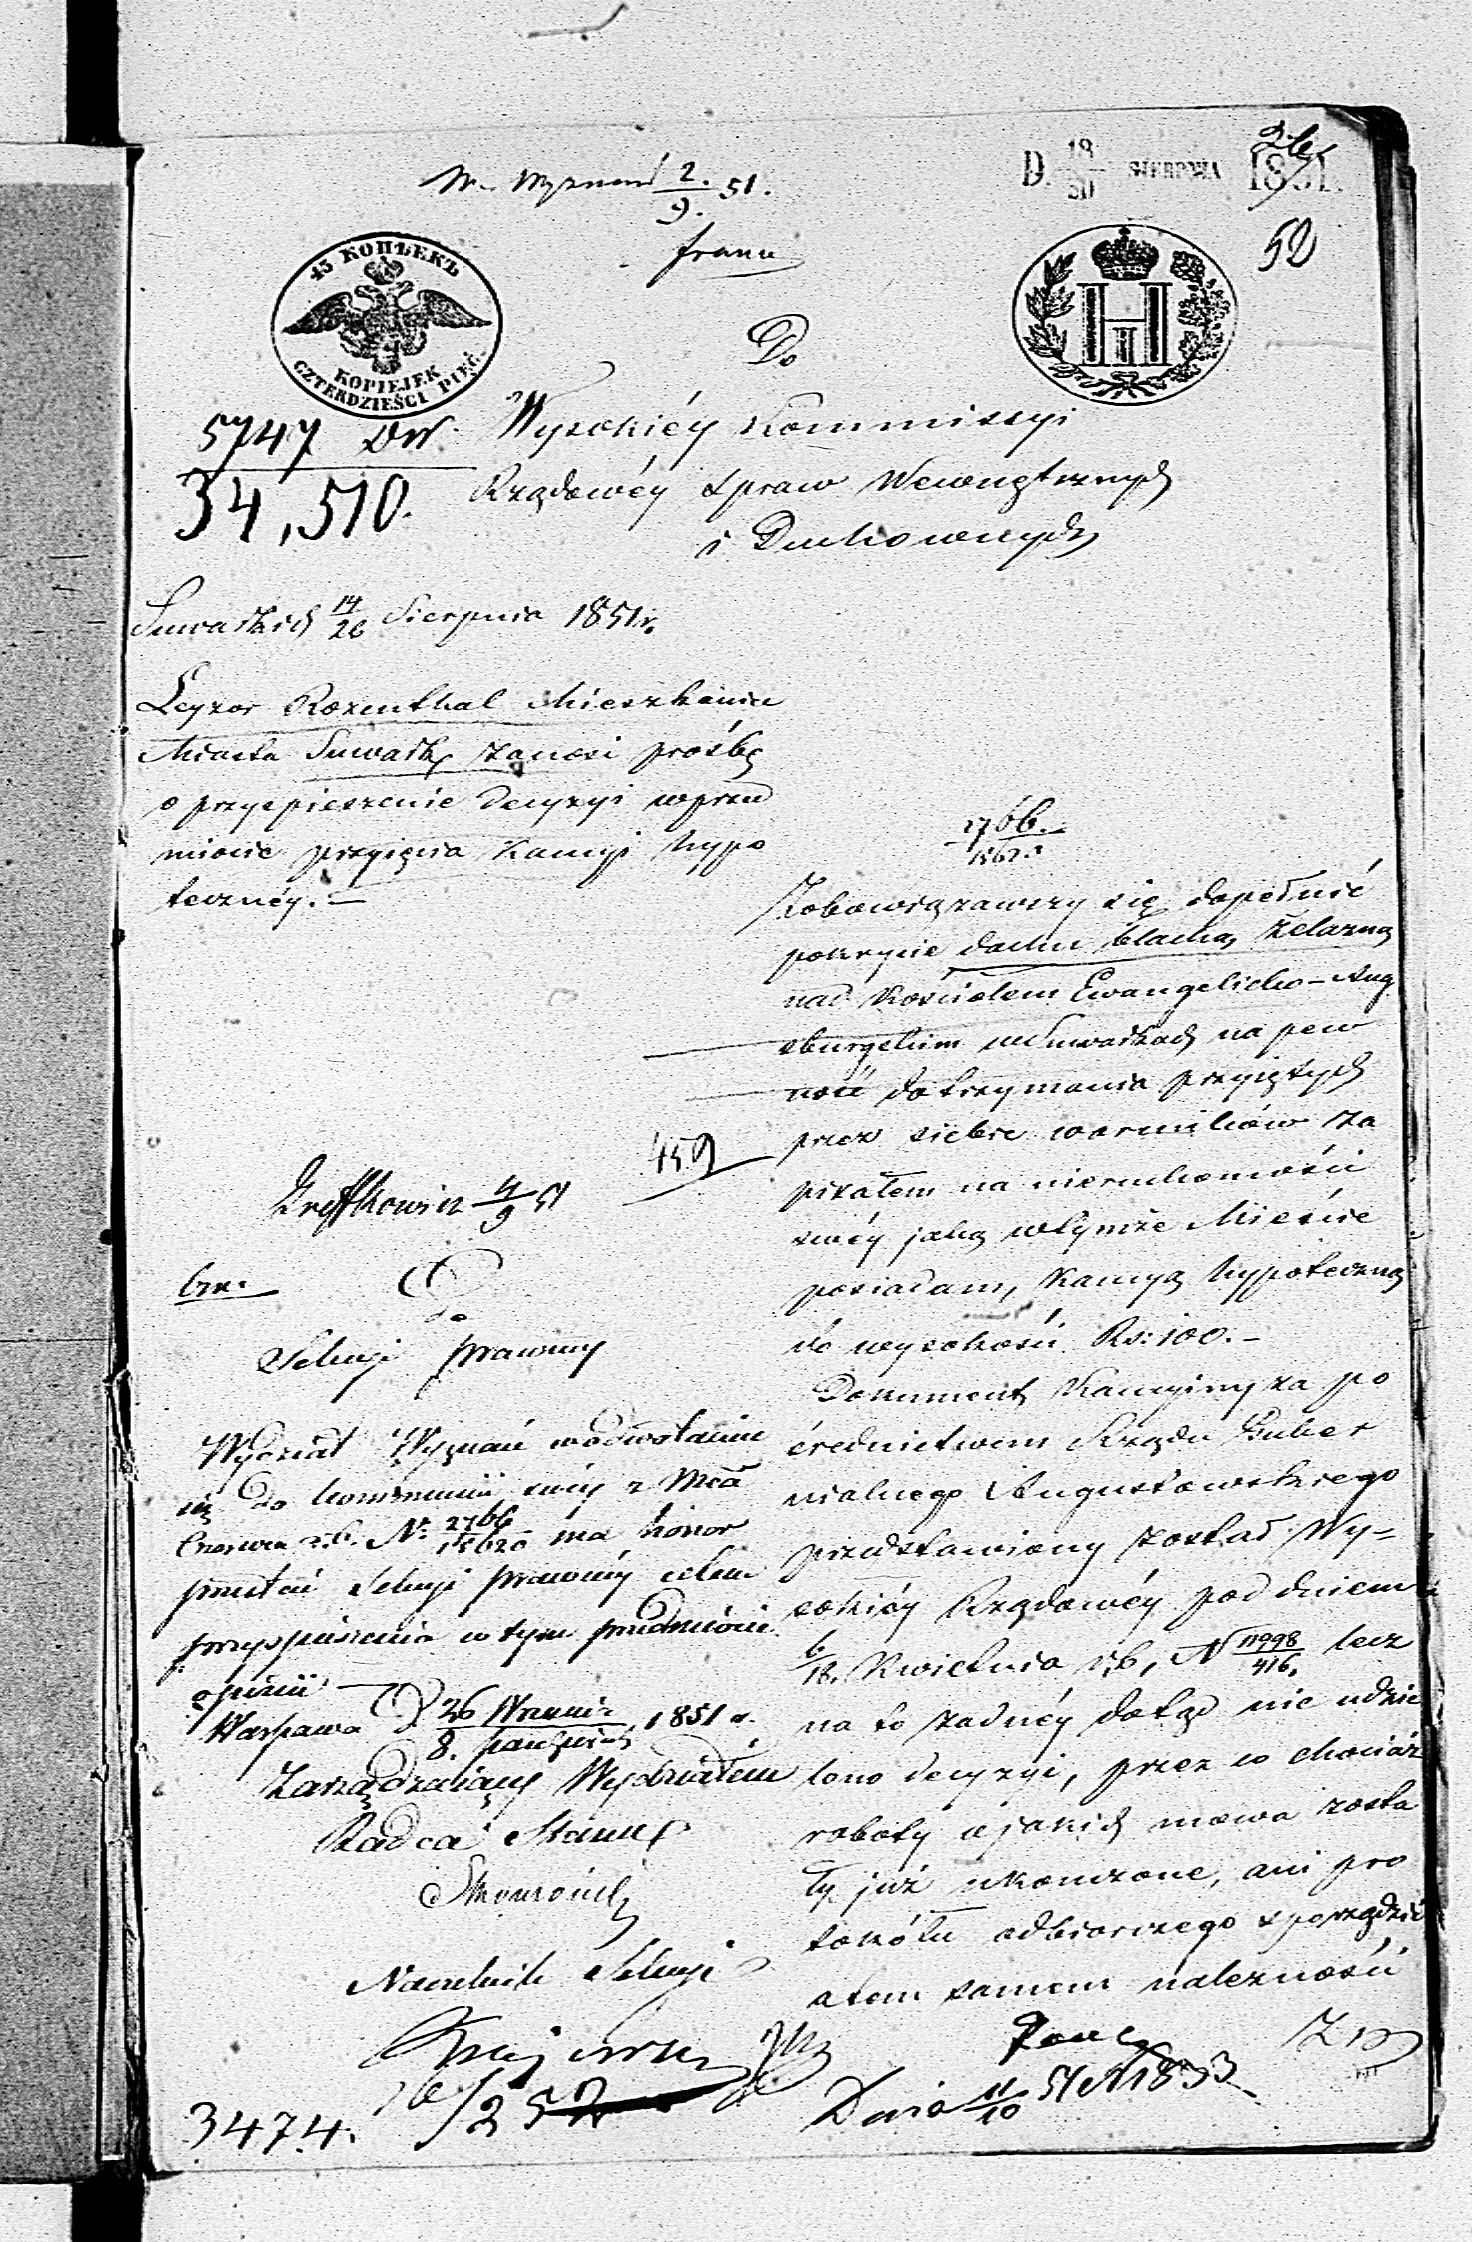 W. Wyznań 2/9. 51.
D. 18/30 SIERPNIA 1851.
franco
50
45 КОПѢЕКЪ
KOPIEJEK
CZTERDZIEŚCI PIĘĆ
Do
5747 DW
34,510.
Wysokiéy Kommissyi
Rządowéy Spraw Wewnętrznych
i Duchownych
Suwałkach 14/26 Sierpnia 1851 r.
Leyzor Rozenthal Mieszkaniec
Miasta Suwałk zanosi prośbę
o przyspieszenie decyzyi w przed
miocie przyięcia Kaucyi hypo
tecznéy. —
2766.
15620
Zobowiązawszy się dopełnić
pokrycie dachu blachą żelazną
nad Kościołem Ewangelicko-Aug
sburgskim w Suwałkach na pew
ność dotrzymania przyiętych
przez siebie warunków za
pisałem na nieruchomości
swéy jaką w tymże Mieście
posiadam, Kaucyą hypoteczną
do wysokości Rs: 100. —
Dokument Kaucyiny za po
średnictwem Rządu Guber
nialnego Augustowskiego
przedstawiony został Wy-
sokiéy Rządowéy pod dniem
6/18. Kwietnia r. b. N 11998/416. lecz
na to żadnéy dotąd nie udzie
lono decyzyi, przez co chociaż
roboty o jakich mowa zosta
ły już ukończone, ani pro
tokółu odbiorczego sporządzić
a tem samem należności
459
4/9 51
Do
Sekcyi Prawnéy
Wydział Wyznań w odwołaniu
się do kommunii swéy z
Czerwca r. b. N: 2766/15620 ma honor
przesłać Sekcyi Prawnéy celem
przyspieszenia w tym przedmiocie
opinii —
Warszawa D. 26 Września/8. Października 1851 r.
Zarządzaiący Wydziałem
Radca Stanu
Naczelnik Sekcyi
3474.
Dnia 11/10 51 N 1833